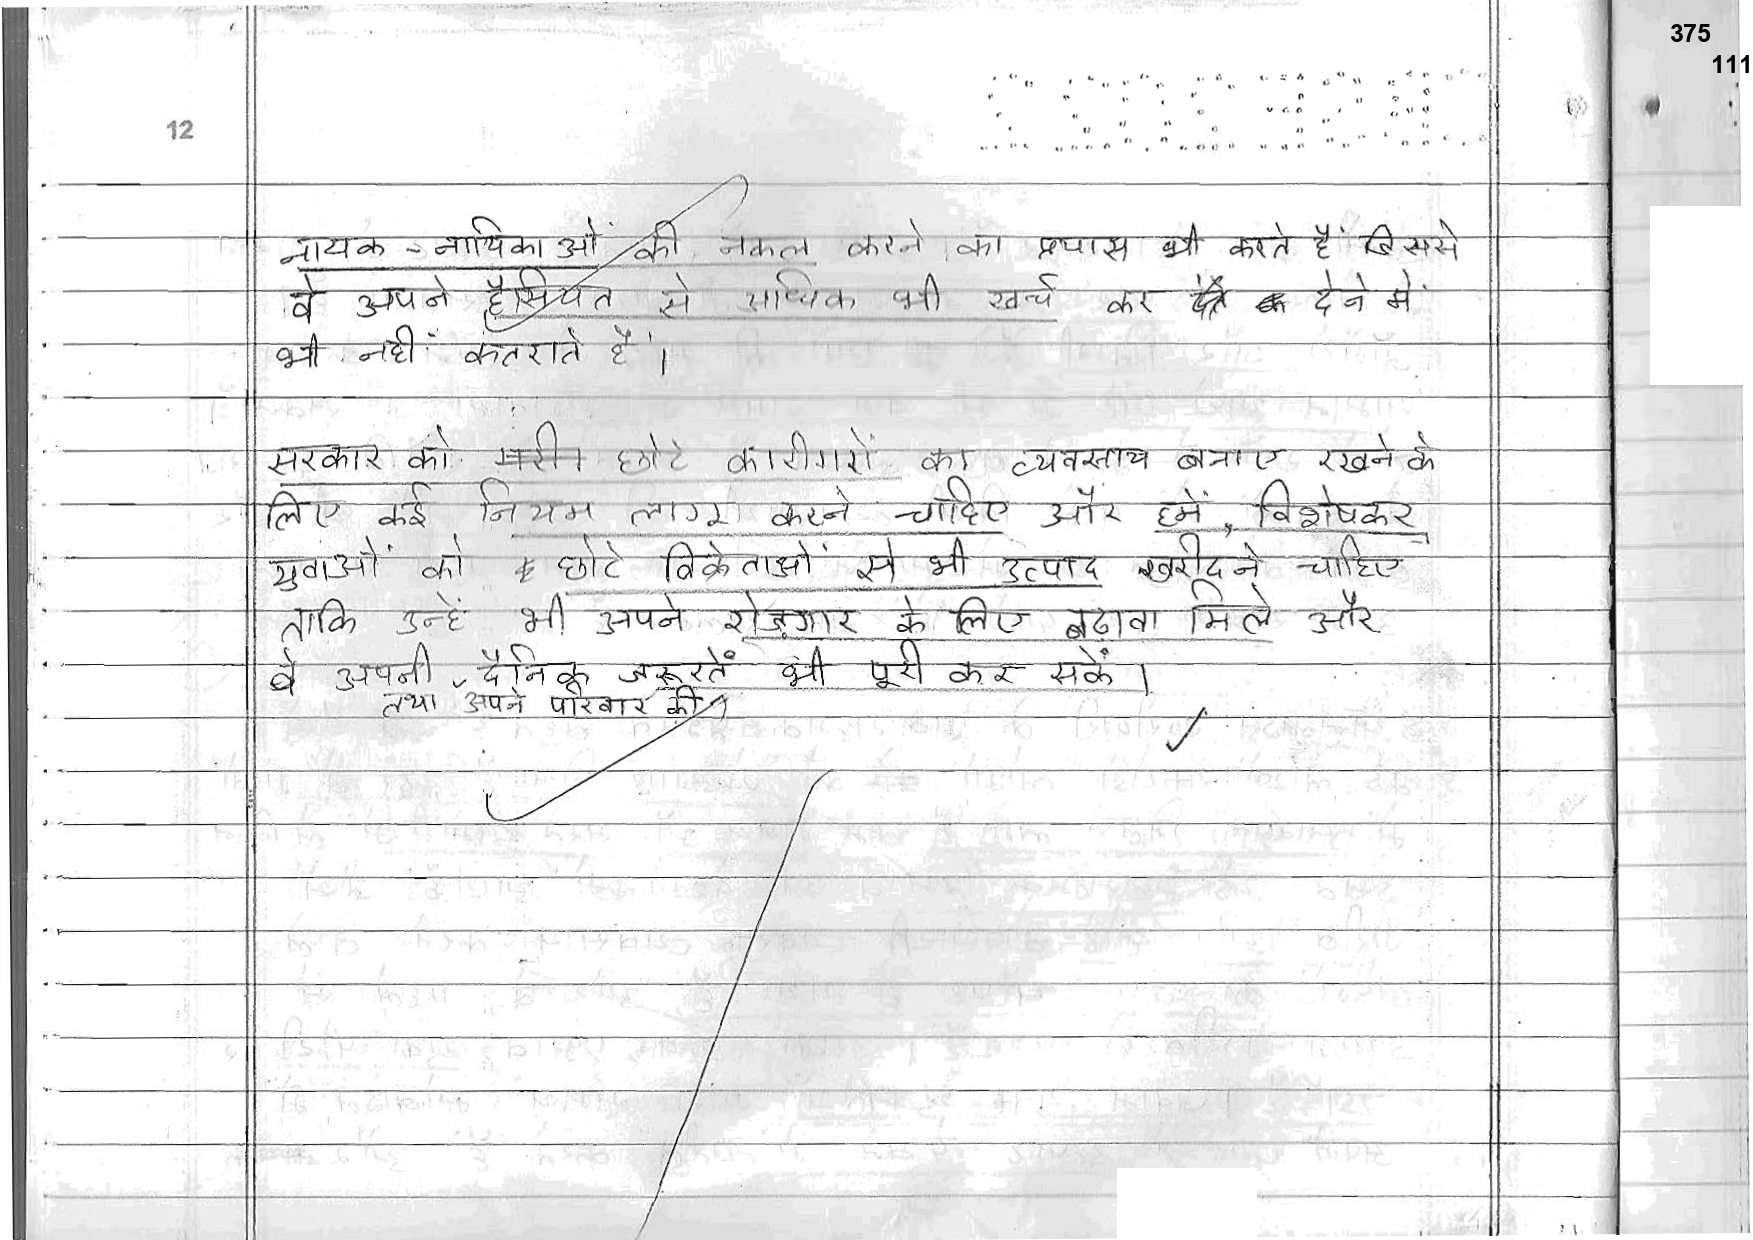 375
111
12
नायक - नायिकाओं की नकल करने का प्रयास भी करते हैं जिससे
वे अपने हैसियत से अधिक भी खर्च कर देने में
भी नहीं कतराते हैं।
सरकार को छोटे कारीगरों का व्यवसाय बनाए रखने के
लिए कई नियम लागू करने चाहिए और हमें, विशेषकर
युवाओं को छोटे विक्रेताओं से भी उत्पाद खरीदने चाहिए
ताकि उन्हें भी अपने रोज़गार के लिए बढ़ावा मिले और
वे अपनी दैनिक जरूरतें भी पूरी कर सकें।
तथा अपने परिवार की